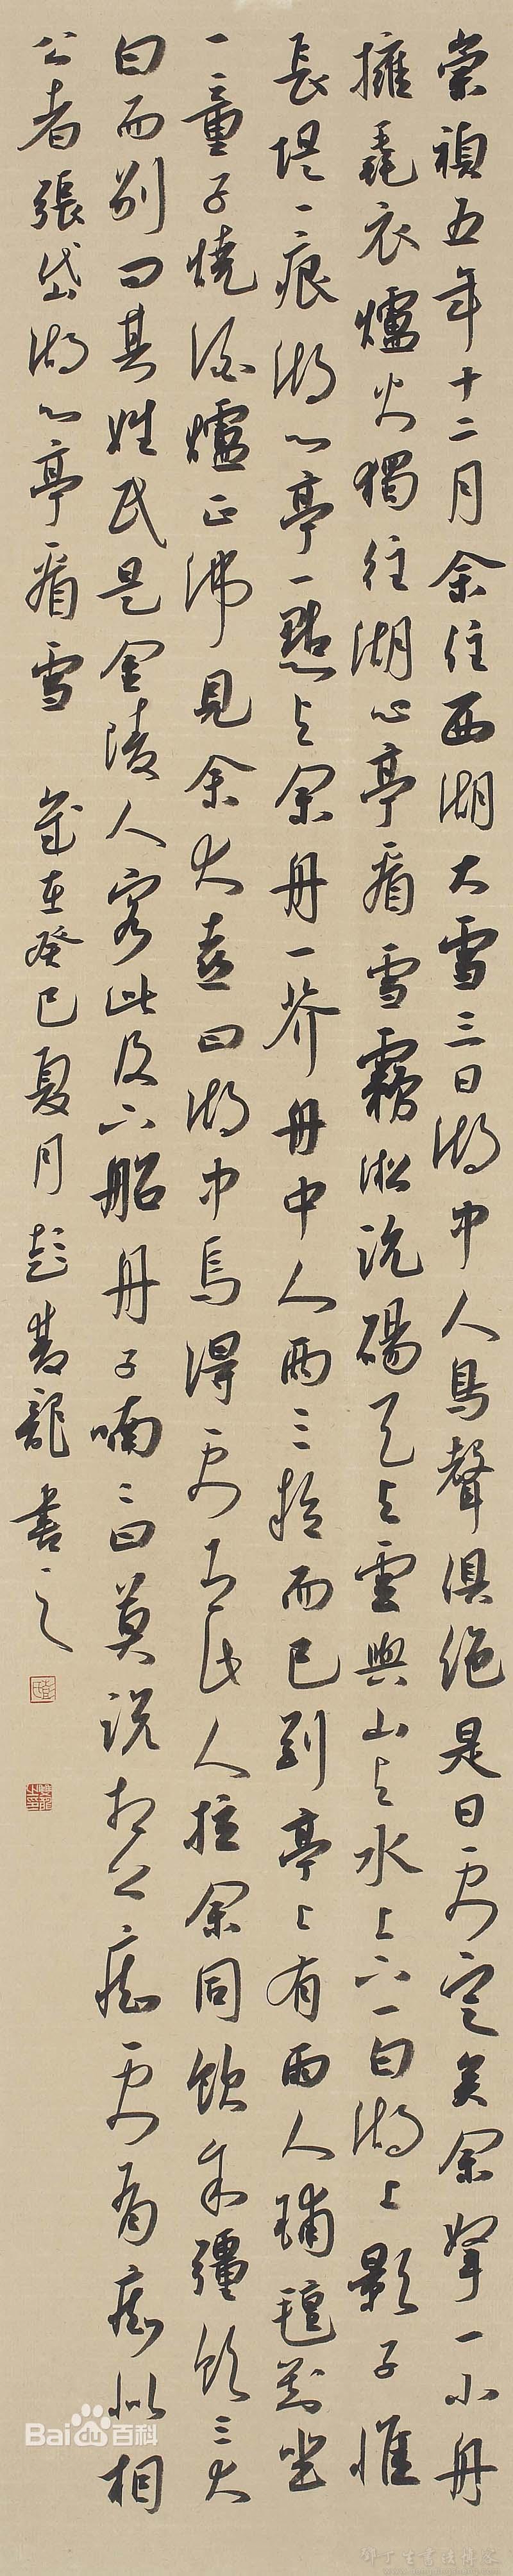 崇禎五年十二月余住西湖大雪三日湖中人鳥聲俱絕是日更定矣余拏一小舟
擁毳衣爐火獨往湖心亭看雪霧淞沆碭天與雲與山與水上下一白湖上影子惟
長堤一痕湖心亭一點與余舟一芥舟中人兩三粒而已到亭上有兩人鋪氈對坐
一童子燒酒爐正沸見余大喜曰湖中焉得更有此人拉余同飲余彊飲三大
白而別問其姓氏是金陵人客此及下船舟子喃喃曰莫說相公癡更有癡似相
公者張岱湖心亭看雪 歲在癸巳夏月彭雙龍書之
Baidu百科